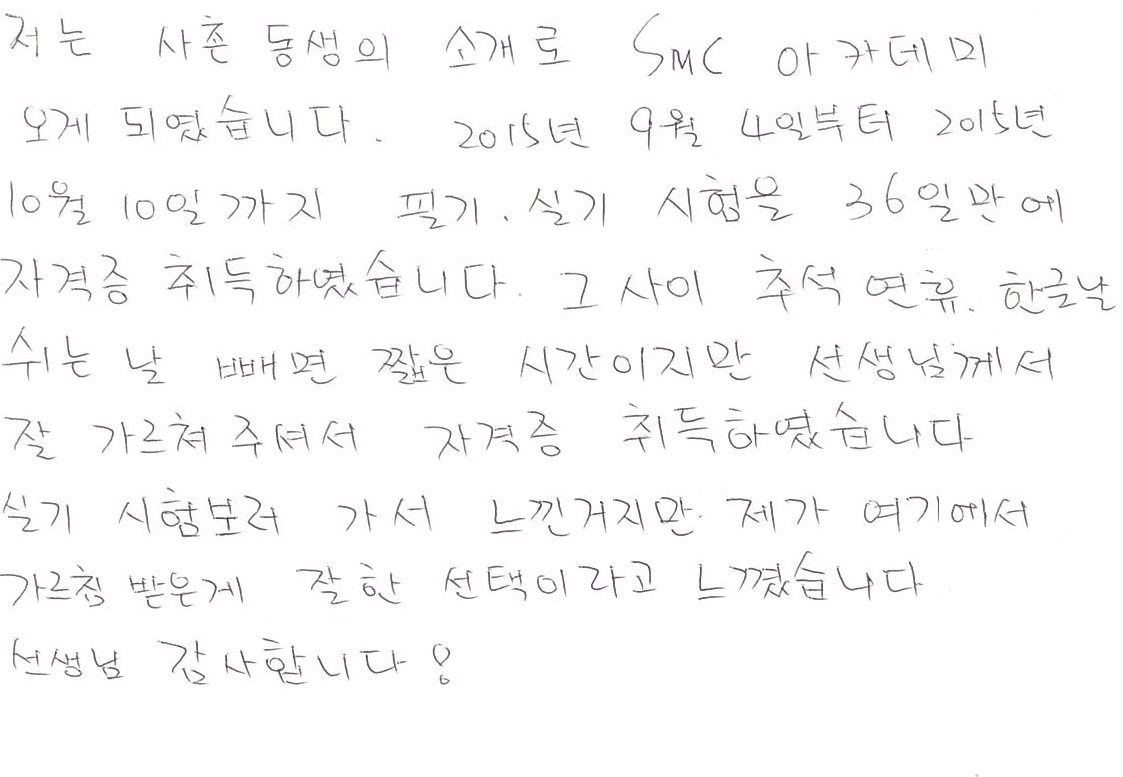 저는 사촌 동생의 소개로 SMC 아카데미
오게 되였습니다. 2015년 9월 4일부터 2015년
10월 10일까지 필기. 실기 시험을 36일만에
자격증 취득하였습니다. 그 사이 추석 연휴. 한글날
쉬는 날 빼면 짧은 시간이지만 선생님께서
잘 가르쳐 주셔서 자격증 취득하였습니다
실기 시험보러 가서 느낀거지만 제가 여기에서
가르침 받은게 잘한 선택이라고 느꼈습니다
선생님 감사합니다!